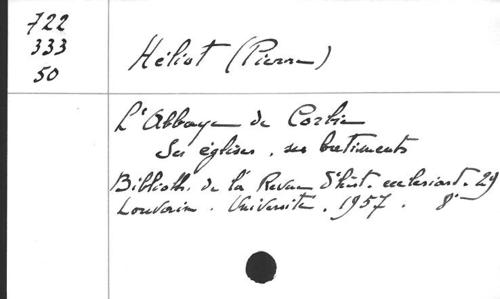 722
333
50
Héliot (Pierre)
L'Abbaye de Corbie
Ses églises, ses batiments
Biblioth. de la Revue d'hist. ecclesiast. 29
Louvain. Universite. 1957. 8°